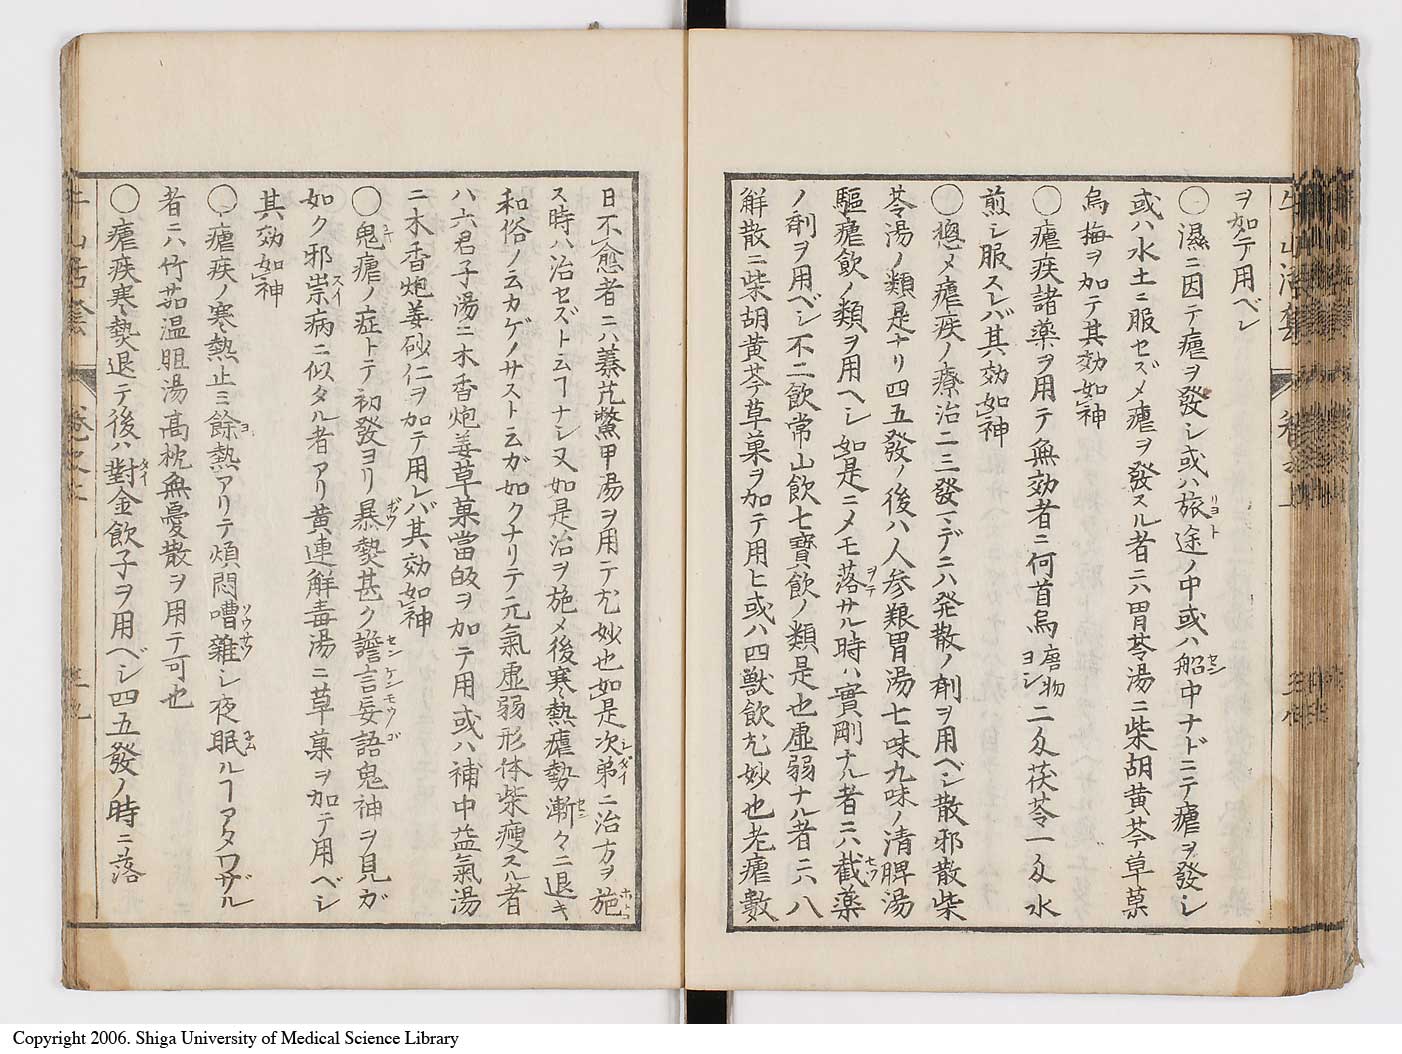 ヲ加テ用ベシ
〇濕ニ因テ瘧ヲ發シ或ハ旅途ノ中或ハ船中ナドニテ瘧ヲ發シ
或ハ水土ニ服セズメ瘧ヲ發スル者ニハ胃苓湯ニ柴胡黄芩草菓
烏梅ヲ加テ其効如神
〇瘧疾諸薬ヲ用テ無効者ニ何首烏唐物ヨシ二匁茯苓一匁水
煎シ服スレバ其効如神
〇緫メ瘧疾ノ療治二三發マデニハ発散ノ剤ヲ用ヘシ散邪散柴
苓湯ノ類是ナリ四五發ノ後ハ人参養胃湯七味九味ノ清脾湯
驅瘧飲ノ類ヲ用ヘシ如是ニメモ落サル時ハ實剛ナル者ニハ截薬
ノ剤ヲ用ベシ不二飲常山飲七寳飲ノ類是也虚弱ナル者ニハ八
解散ニ柴胡黄芩草菓ヲ加テ用ヒ或ハ四獣飲尤妙也老瘧數
日不愈者ニハ蓁芃鱉甲湯ヲ用テ尤妙也如是次第ニ治方ヲ施
ス時ハ治セズト云ヿナシ又如是治ヲ施メ後寒熱瘧勢漸々ニ退キ
和俗ノ云カゲノサスト云ガ如クナリテ元氣虚弱形体柴瘦スル者
ハ六君子湯ニ木香炮姜草菓當皈ヲ加テ用或ハ補中益氣湯
ニ木香炮姜砂仁ヲ加テ用レバ其効如神
〇鬼瘧ノ症トテ初發ヨリ暴熱甚ク譫言妄語鬼神ヲ見ガ
如ク邪祟病ニ似タル者アリ黄連解毒湯ニ草菓ヲ加テ用ベシ
其効如神
〇瘧疾ノ寒熱止ミ餘熱アリテ煩悶嘈雜シ夜眠ルヿアタワザル
者ニハ竹茹温胆湯髙枕無憂散ヲ用テ可也
〇瘧疾寒熱退テ後ハ對金飲子ヲ用ベシ四五發ノ時ニ落